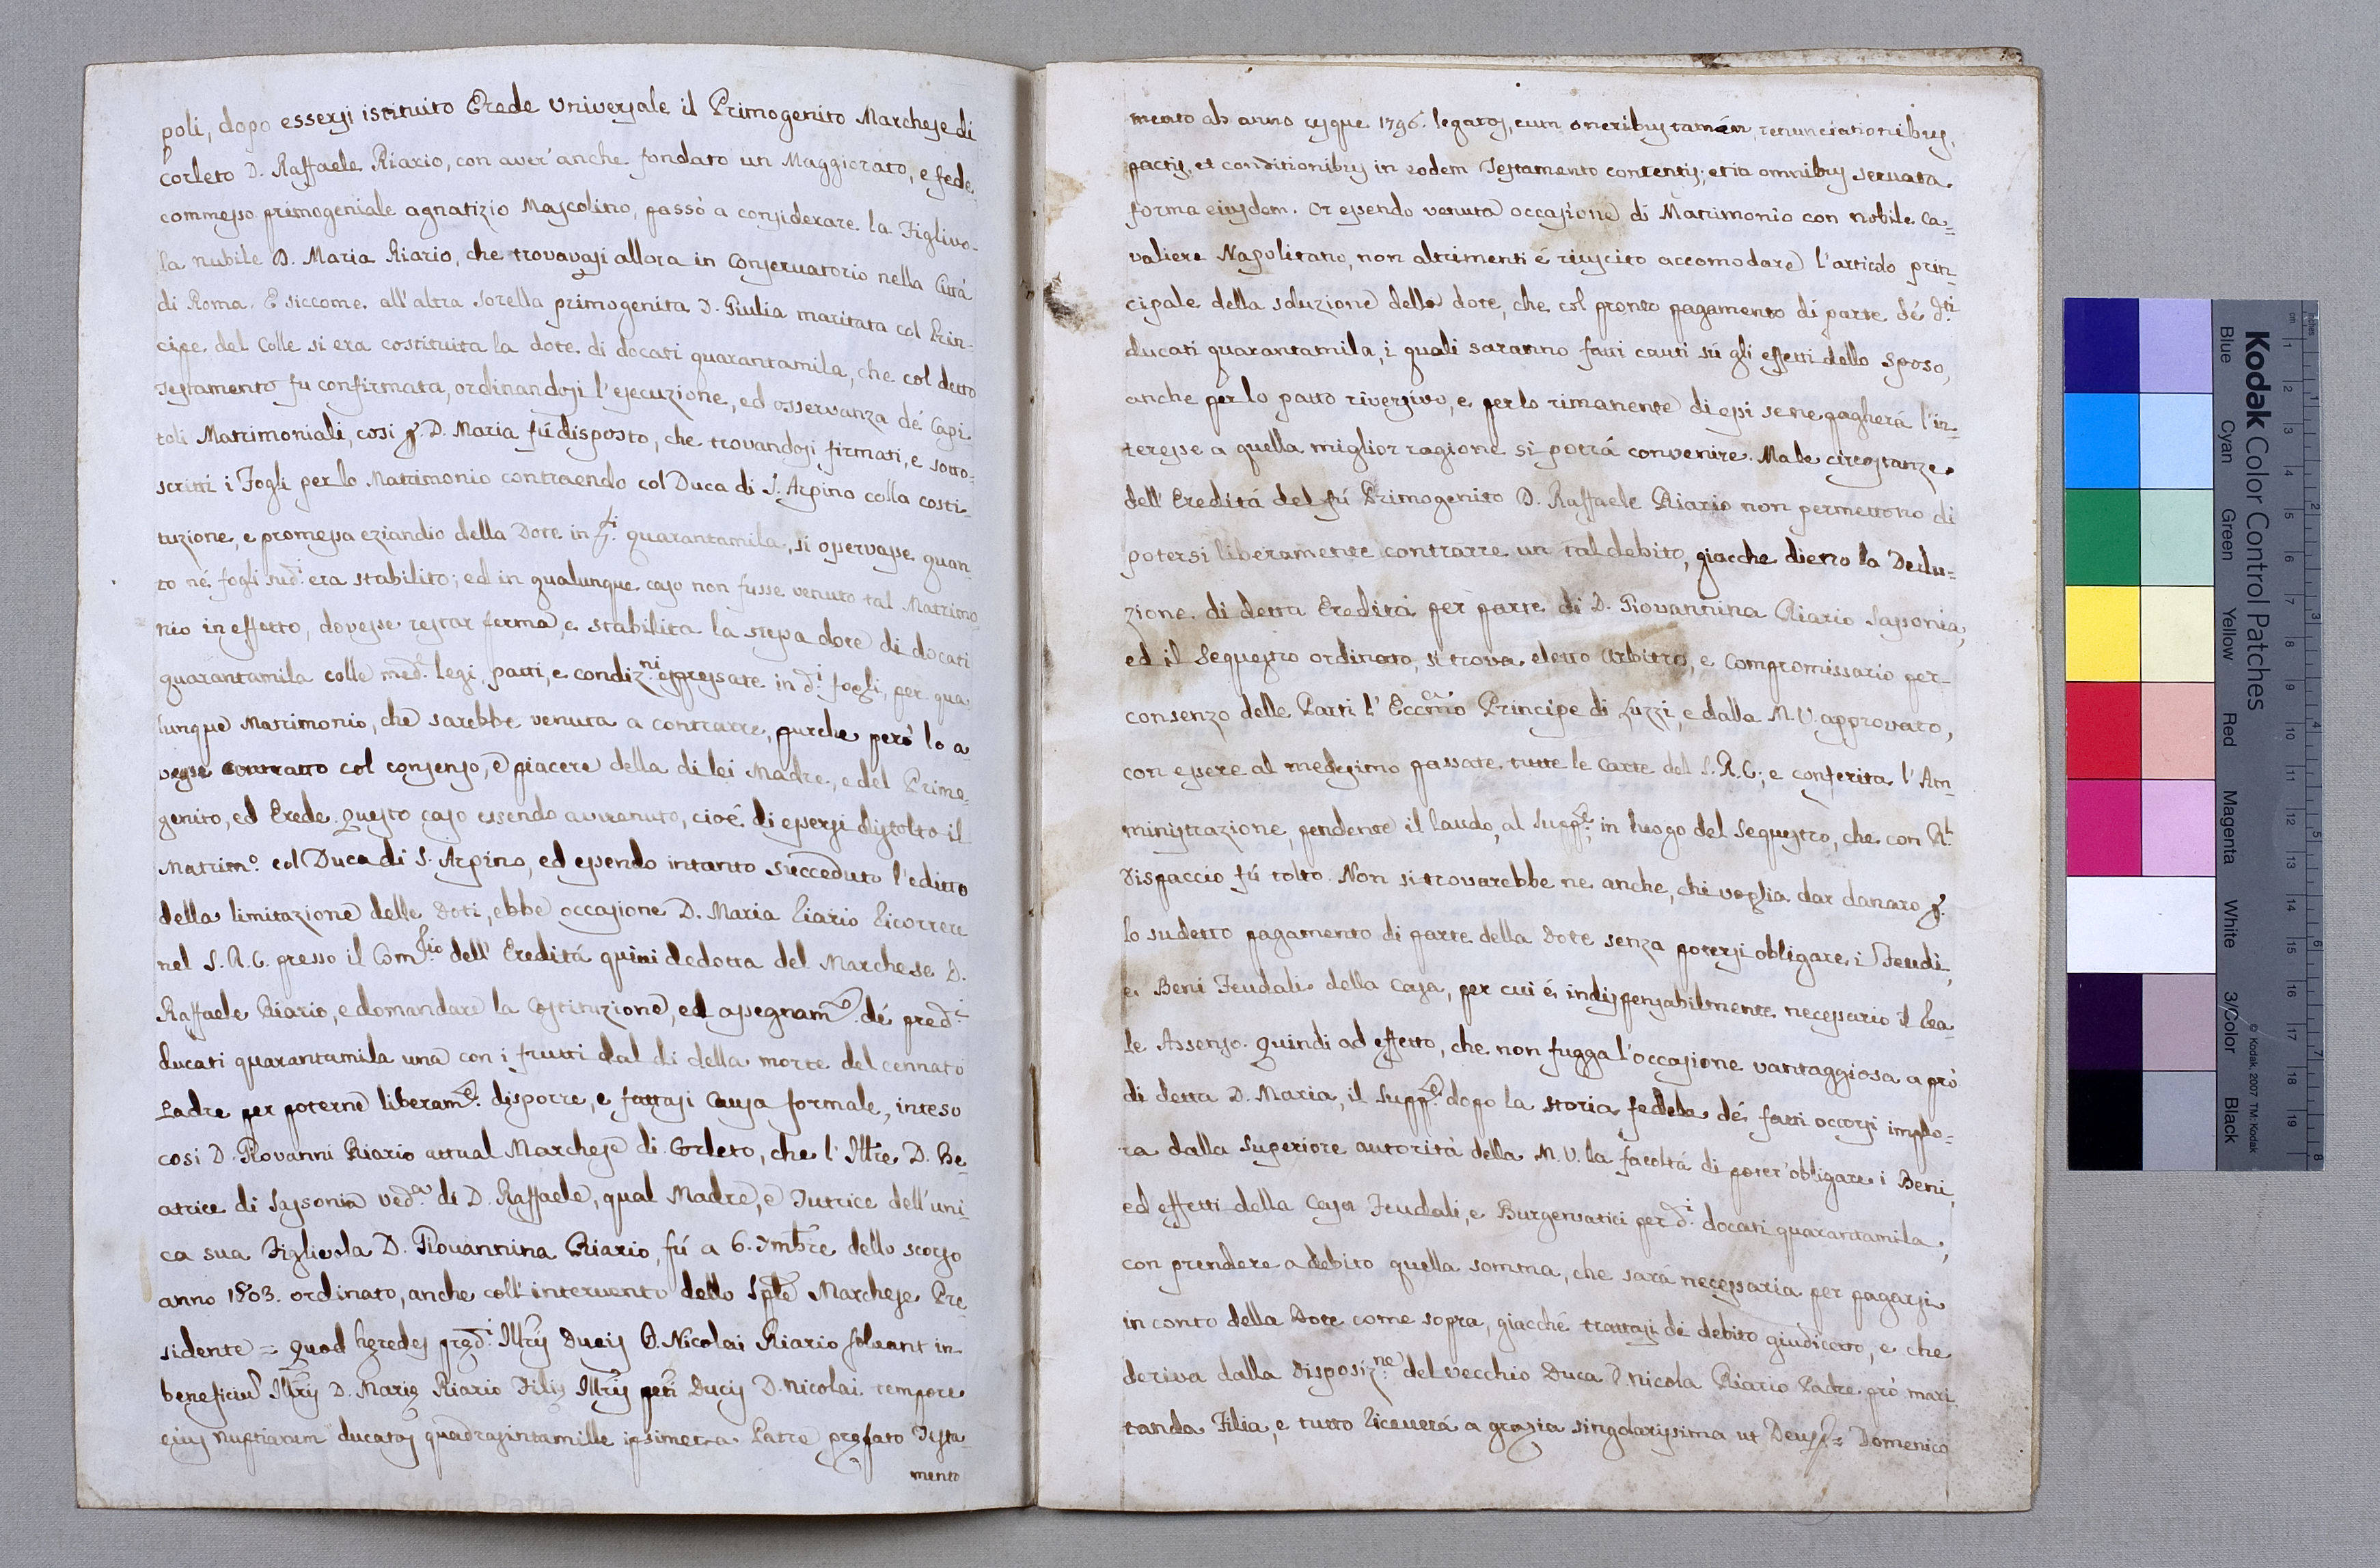 poli, dopo essersi istituito Erede Universale il Primogenito Marchese di
Corleto D. Raffaele Riario, con aver' anche fondato un Maggiorato, e fede
commesso primogeniale agnatizio Mascolino, passò a considerare la Figlivo-
la nubile D. Maria Riario, che trovavasi allora in Conservatorio nella Città
di Roma. E siccome all'altra Sorella primogenita D. Giulia maritata col Prin-
cipe del Colle si era costituita la dote di docati quarantamila, che col detto
Testamento fu confirmata, ordinandosi l'esecuzione, ed osservanza dé Capi
toli Matrimoniali, cosi p. D. Maria fú disposto, che trovandosi firmati, e sotto-
scritti i Fogli per lo Matrimonio contraendo col Duca di S. Arpino colla costi-
tuzione, e promessa eziandio della Dote in quarantamila, si osservasse quan-
to né fogli sud.i era stabilito; ed in qualunque caso non fusse venuto tal Matrimo
nio in effetto, dovesse restar ferma, e stabilita la stessa dote di docati
quarantamila colle med.e legi, patti, e condiz.ni espressate in d.i fogli, per qua
lunque Matrimonio, che sarebbe venuta a contrarre, purche però lo a
vesse contratto col consenso, e piacere della di lei Madre, e del Primo-
genito, ed Erede. Questo caso essendo avvenuto, cioé di essersi distolto il
Matrim.o col Duca di S. Arpino, ed essendo intanto succeduto l'editto
della limitazione delle Doti, ebbe occasione D. Maria Riario ricorrere
nel S. R. C. presso il Com.rio dell' Ereditá quini dedotta del Marchese D.
Raffaele Riario, e domandare la Costituzione, ed assegnam.e dé pred.i
ducati quarantamila una con i frutti dal di della morte del cennato
Padre per poterne liberam.e disporre, e fattasi Causa formale, inteso
cosi D. Giovanni Riario attual Marchese di Corleto, che l' Ill're D. Be-
atrice di Sassonia ved.a di D. Raffaele, qual Madre, e Tutrice dell'uni-
ca sua Figliuola D. Giovannina Riario, fú a 6. Xmbre dello scorso
anno 1803. ordinato, anche coll'intervento dello Sp'le Marchese Pre
sidente = Quod heredes pred.i Ill'ris Ducis D. Nicolai Riario solvant in
beneficiu' Ill'ris D. Marię Riario Filię Ill'ris Ducis D. Nicolai tempore
ejus nuptiarum ducatos quadragintamille ipsimet a Patre pręfato Testa
mento
mento ab anno usque 1796. legatos, cum oneribus tamen, renunciationibus,
pactis, et conditionibus in eodem Testamento contentis; et ita omnibus servata
forma eiusdem. Or essendo venuta occasione di Matrimonio con nobile Ca-
valiere Napolitano, non altrimenti é riuscito accomodare l'articolo prin-
cipale della soluzione della dote, che col pronto pagamento di parte dé d.ti
ducati quarantamila, i quali saranno fatti cauti sú gli effetti dello Sposo,
anche per lo patto riversivo, e per lo rimanente di essi se ne pagherá l'in-
teresse a quella miglior ragione si potrá convenire. Ma le circostanze
dell' Ereditá del fú Primogenito D. Raffaele Riario non permettono di
potersi liberamente contrarre un tal debito, giacche dietro la Dedu-
zione di detta Ereditá per parte di D. Giovannina Riario Sassonia,
ed il Sequestro ordinato, si trova eletto Arbitro, e Compromissario per
consenzo delle Parti l' Ecc.mo Principe di Luzzi, e dalla M. V. approvato,
con essere al medesimo passate tutte le Carte del S. R. C.; e conferita l' Am-
ministrazione, pendente il laudo, al Supp.e in luogo del Sequestro, che con R.l
Dispaccio fú tolto. Non si trovarebbe ne anche, chi voglia dar danaro p.
lo sudetto pagamento di parte della Dote senza potersi obligare i Feudi,
e Beni Feudali della Casa, per cui é indispensabilmente necessario il Rea
le Assenso. Quindi ad effetto, che non fugga l'occasione vantaggiosa a pró
di detta D. Maria, il Supp.e dopo la storia fedele dé fatti occorsi implo-
ra dalla Superiore autoritá della M. V. la facoltá di poter' obligare i Beni,
ed effetti della Casa Feudali, e Burgensatici per d.i docati quarantamila,
con prendere a debito quella somma, che sará necessaria per pagarsi
in conto della Dote come sopra, giacché trattasi di debito giudicato, e che
deriva dalla Disposiz.ne del vecchio Duca D. Nicola Riario Padre pró mari
tanda Filia, e tutto riceverá a grazia singolarissima ut Deus = Domenico